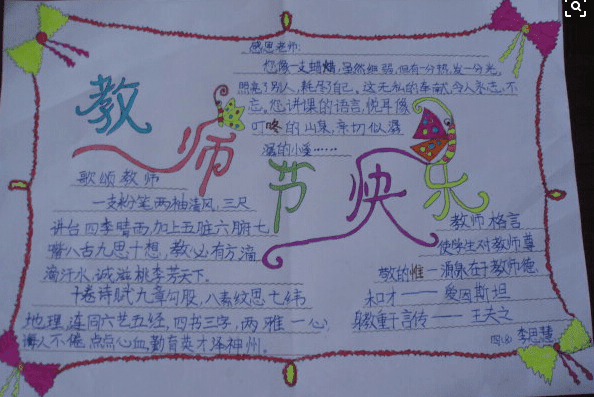 感恩老师:
您像一支蜡烛,虽然细弱,但有一分热,发一分光,
照亮了别人,耗尽了自己。这无私的奉献,令人永志不
忘。您讲课的语言,悦耳像
叮咚的山泉,亲切似潺
潺的小溪……
教师节快乐
歌颂教师
一支粉笔两袖清风,三尺
讲台四季晴雨,加上五脏六腑七
嘴八舌九思十想,教必有方滴
滴汗水,诚滋桃李芳天下。
十卷诗赋九章勾股,八索纹思七纬
地理,连同六艺五经,四书三字,两雅一心
诲人不倦,点点心血,勤育英才泽神州。
教师格言
使学生对教师尊
敬的惟一源泉在于教师德
和才——爱因斯坦
身教重于言传——王夫之
李思慧